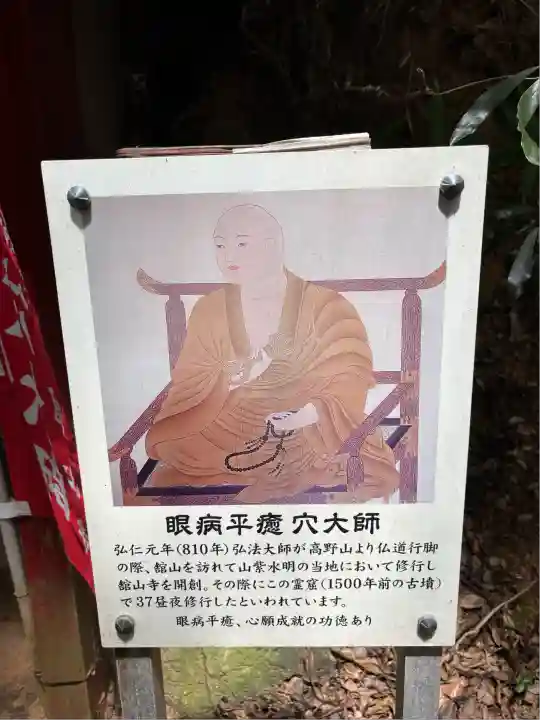 眼病平癒 穴大師
弘仁元年(810年)弘法大師が高野山より仏道行脚
の際、舘山を訪れて山紫水明の当地において修行し
舘山寺を開創。その際にこの霊窟(1500年前の古墳)
で37昼夜修行したといわれています。
眼病平癒、心願成就の功徳あり